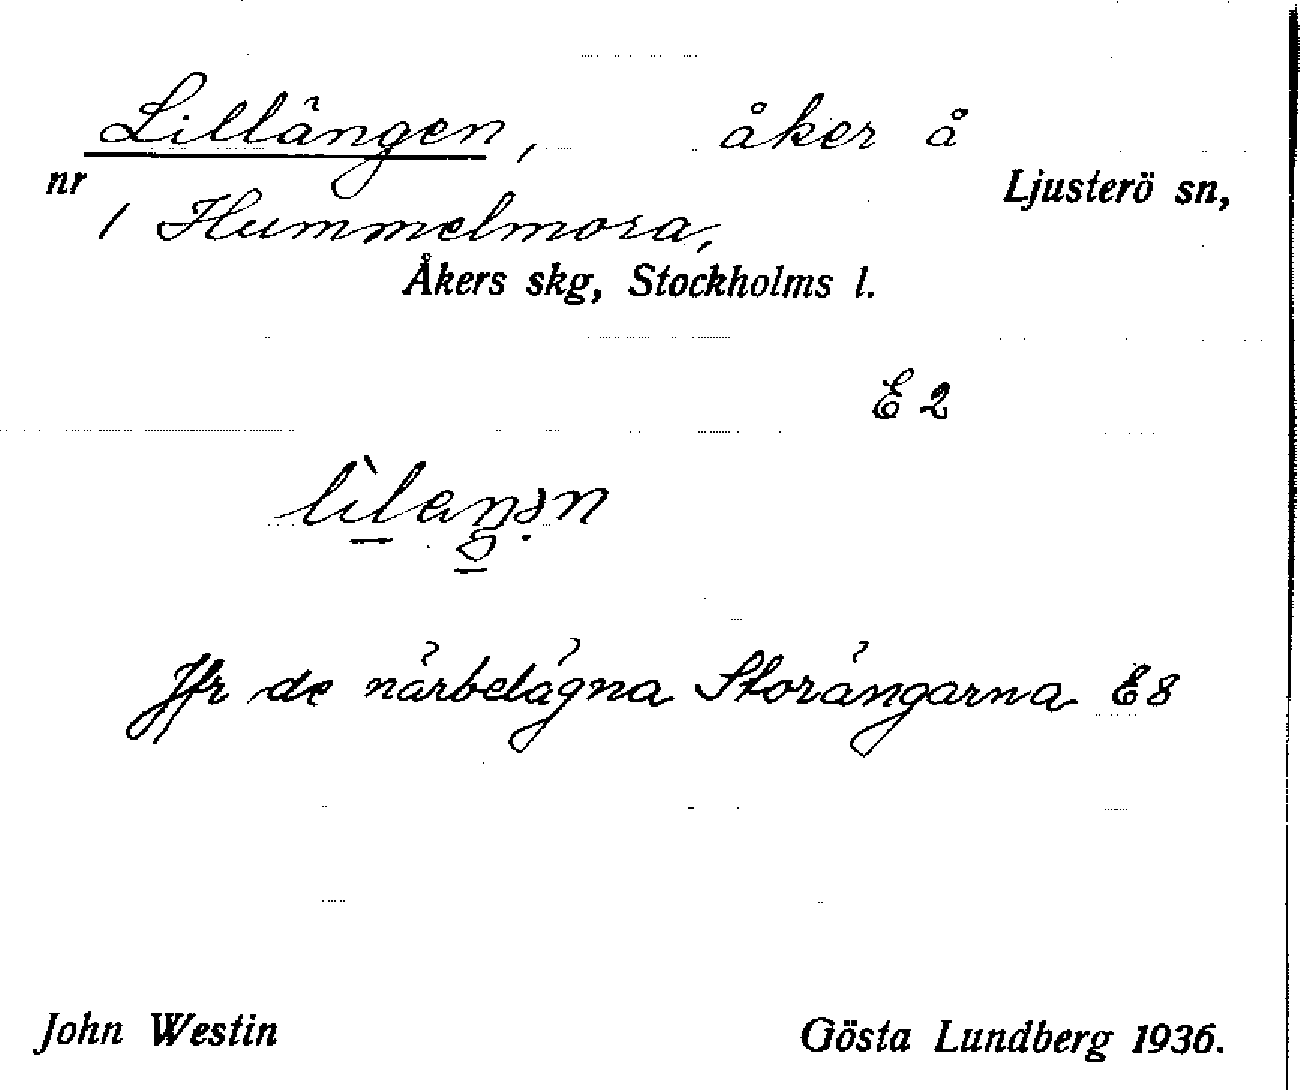 Lillängen, åker å
nr Ljusterö sn,
1 Hummelmora,
Åkers skg, Stockholms l.
E 2
Jfr de närbelägna Storängarna E8
John Westin Gösta Lundberg 1936.